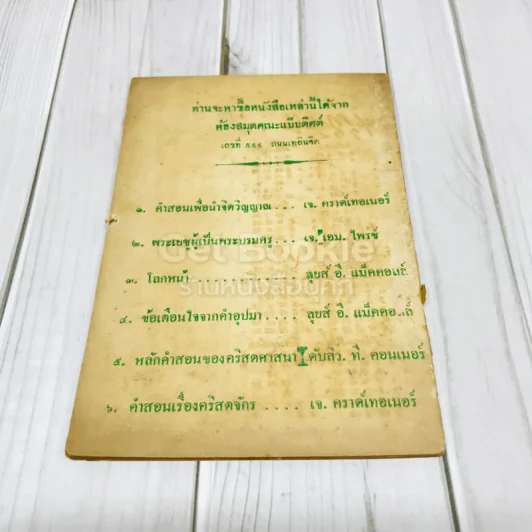 ท่านจะหาซื้อหนังสือเหล่านี้ได้จาก
ห้องสมุดคณะแบ๊บติศต์
เลขที่ ๕๕๕ ถนนเพลินจิต
๑. คำสอนเพื่อนำจิตวิญญาณ... เจ. คราต์เทอเนอร์
๒. พระเยซูผู้เป็นพระบรมครู... เจ. เอม. ไพรซ์
Get Bookie
๓. โลกหน้า............. ลุยส์ อี. แม็คคอลล์
ร้านหนังสือบุ๊กกี้
๔. ข้อเตือนใจจากคำอุปมา.... ลุยส์ อี. แม็คคอลล์
๕. หลักคำสอนของคริสตศาสนา ดับลิว. ที. คอนเนอร์
๖. คำสอนเรื่องคริสตจักร .... เจ. คราต์เทอเนอร์